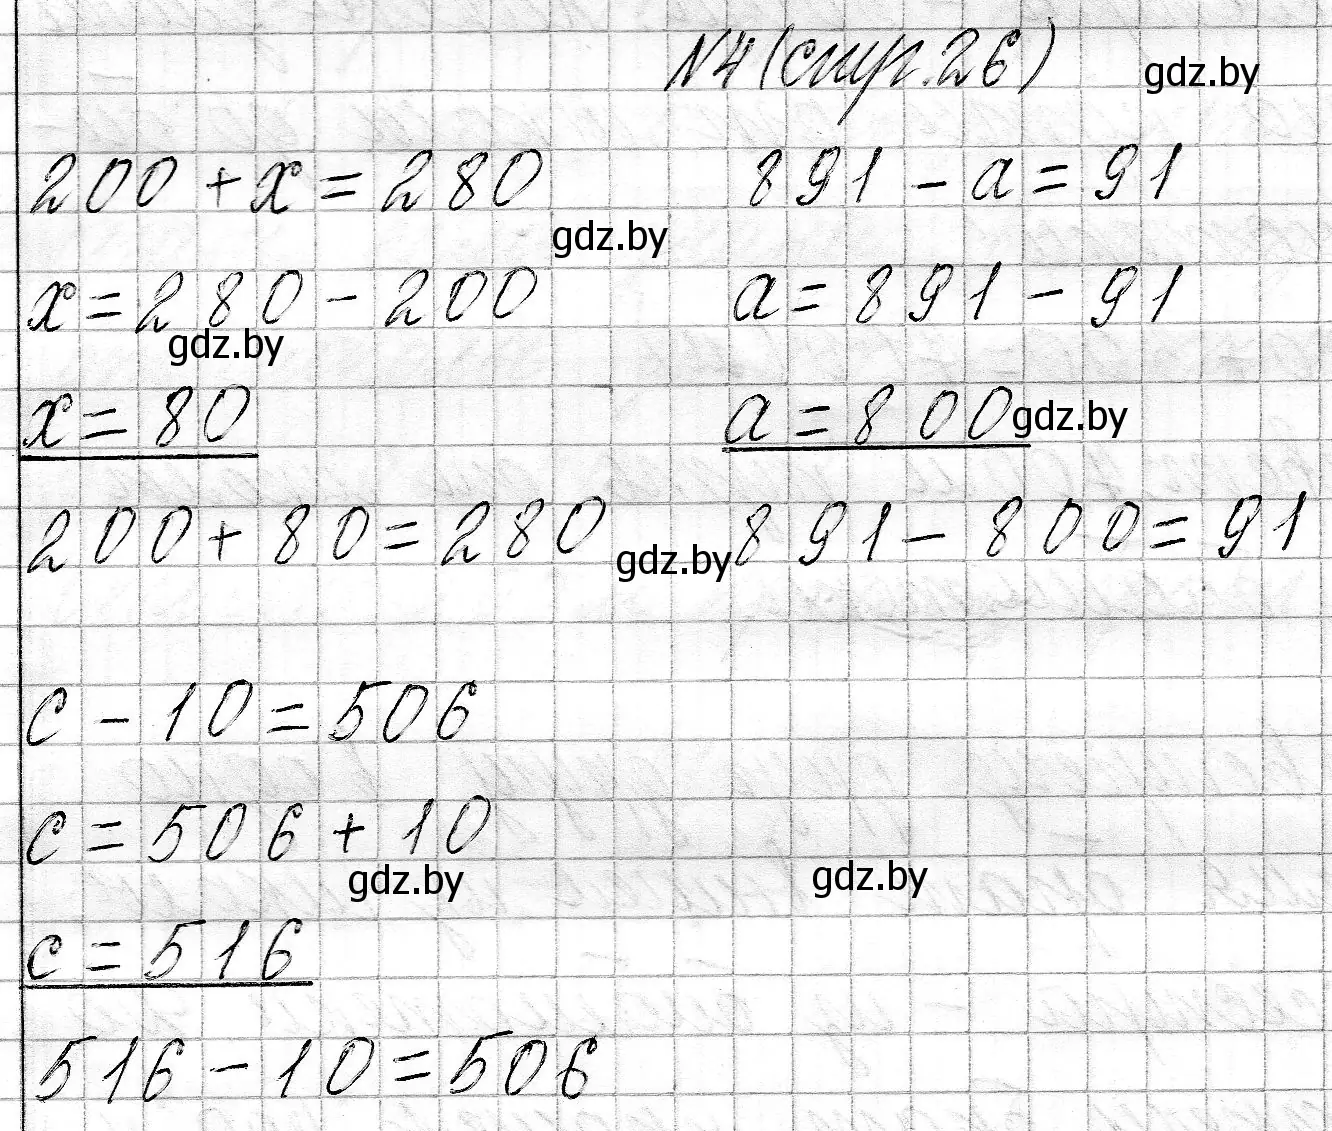 №4 (стр. 26)
gdz.by
200 + x = 280
891 - a = 91
gdz.by
x = 280 - 200
a = 891 - 91
gdz.by
x = 80
a = 800
gdz.by
200 + 80 = 280
gdz.by
891 - 800 = 91
c - 10 = 506
c = 506 + 10
gdz.by
gdz.by
c = 516
516 - 10 = 506